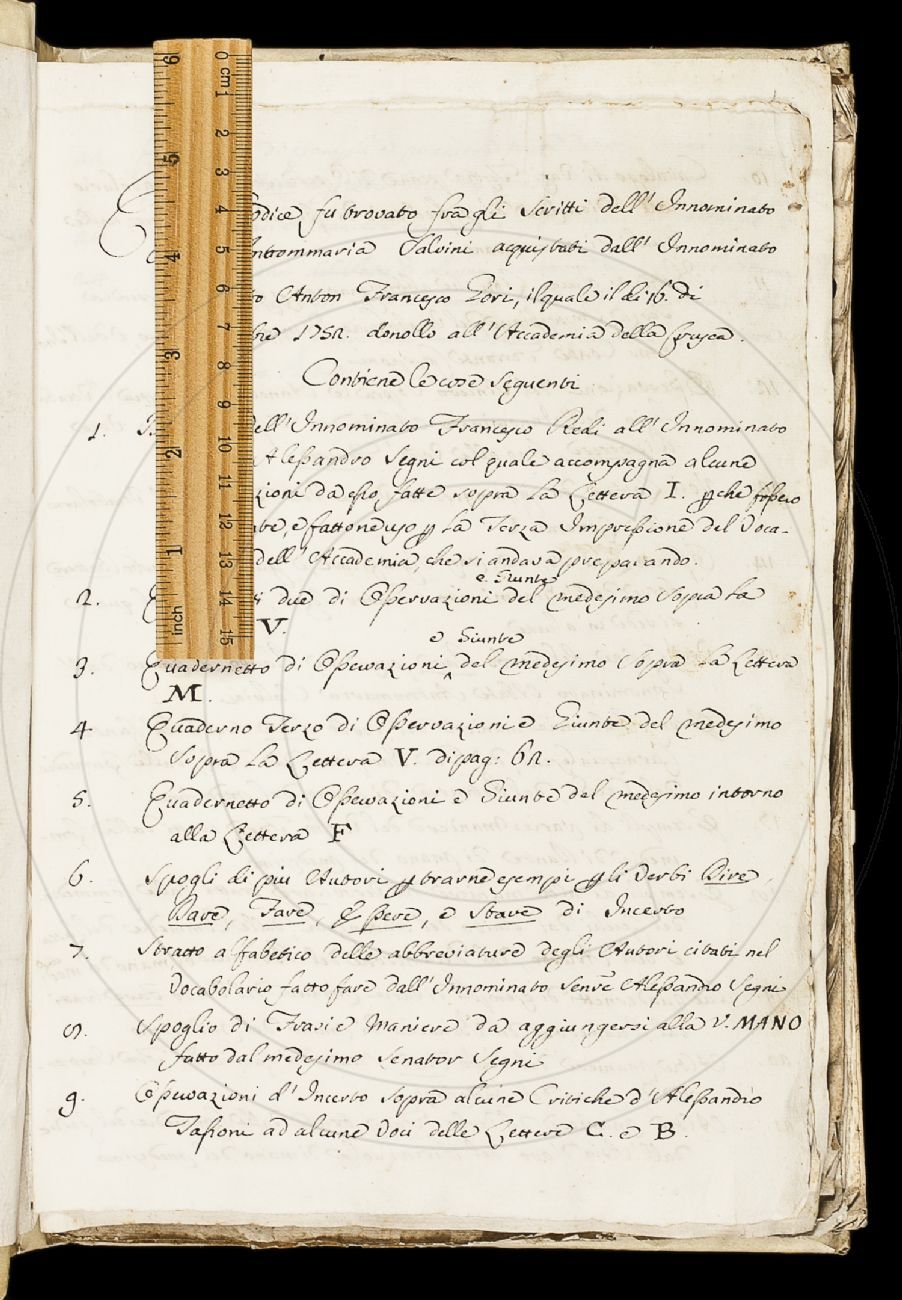 odice, fu trovato fra gli Scritti dell' Innominato
ntommaria Salvini acquistati dall' Innominato
to Anton Francesco Gori, il quale il dì 16. di
bre 1752. donollo all' Accademia della Crusca.
Contiene le cose seguenti
1. dell' Innominato Francesco Redi all' Innominato
Alessandro Segni col quale accompagna alcune
zioni da esso fatte sopra la Lettera I. ꝑche fossero
te, e fattone uso ꝑ la Terza Impressione del Voca-
dell' Accademia, che si andava preparando.
e Giunte
2. due di Osservazioni del medesimo Sopra la
V.
e Giunte
3. Quadernetto di Osservazioni ^ del medesimo Sopra la Lettera
M.
4 Quaderno Terzo di Osservazioni e Giunte del medesimo
Sopra la Lettera V. di pag: 62.
5. Quadernetto di Osservazioni e Giunte del medesimo intorno
alla Lettera F
6. Spogli di più Autori ꝑ trarne esempi ꝑ gli Verbi Dire,
Dare, Fare, Essere, e Stare di Incerto
7. Stratto alfabetico delle abbreviature degli Autori citati nel
Vocabolario fatto fare dall' Innominato Senre Alessandro Segni
8. Spoglio di Frasi e Maniere da aggiungersi alla V. MANO
fatto dal medesimo Senator Segni
9. Osservazioni d' Incerto sopra alcune Critiche d' Alessandro
Tassoni ad alcune Voci delle Lettere C. e B.
0 cm 1 2 3 4 5 6 7 8 9 10 11 12 13 14 15
6 5 4 3 2 1 inch